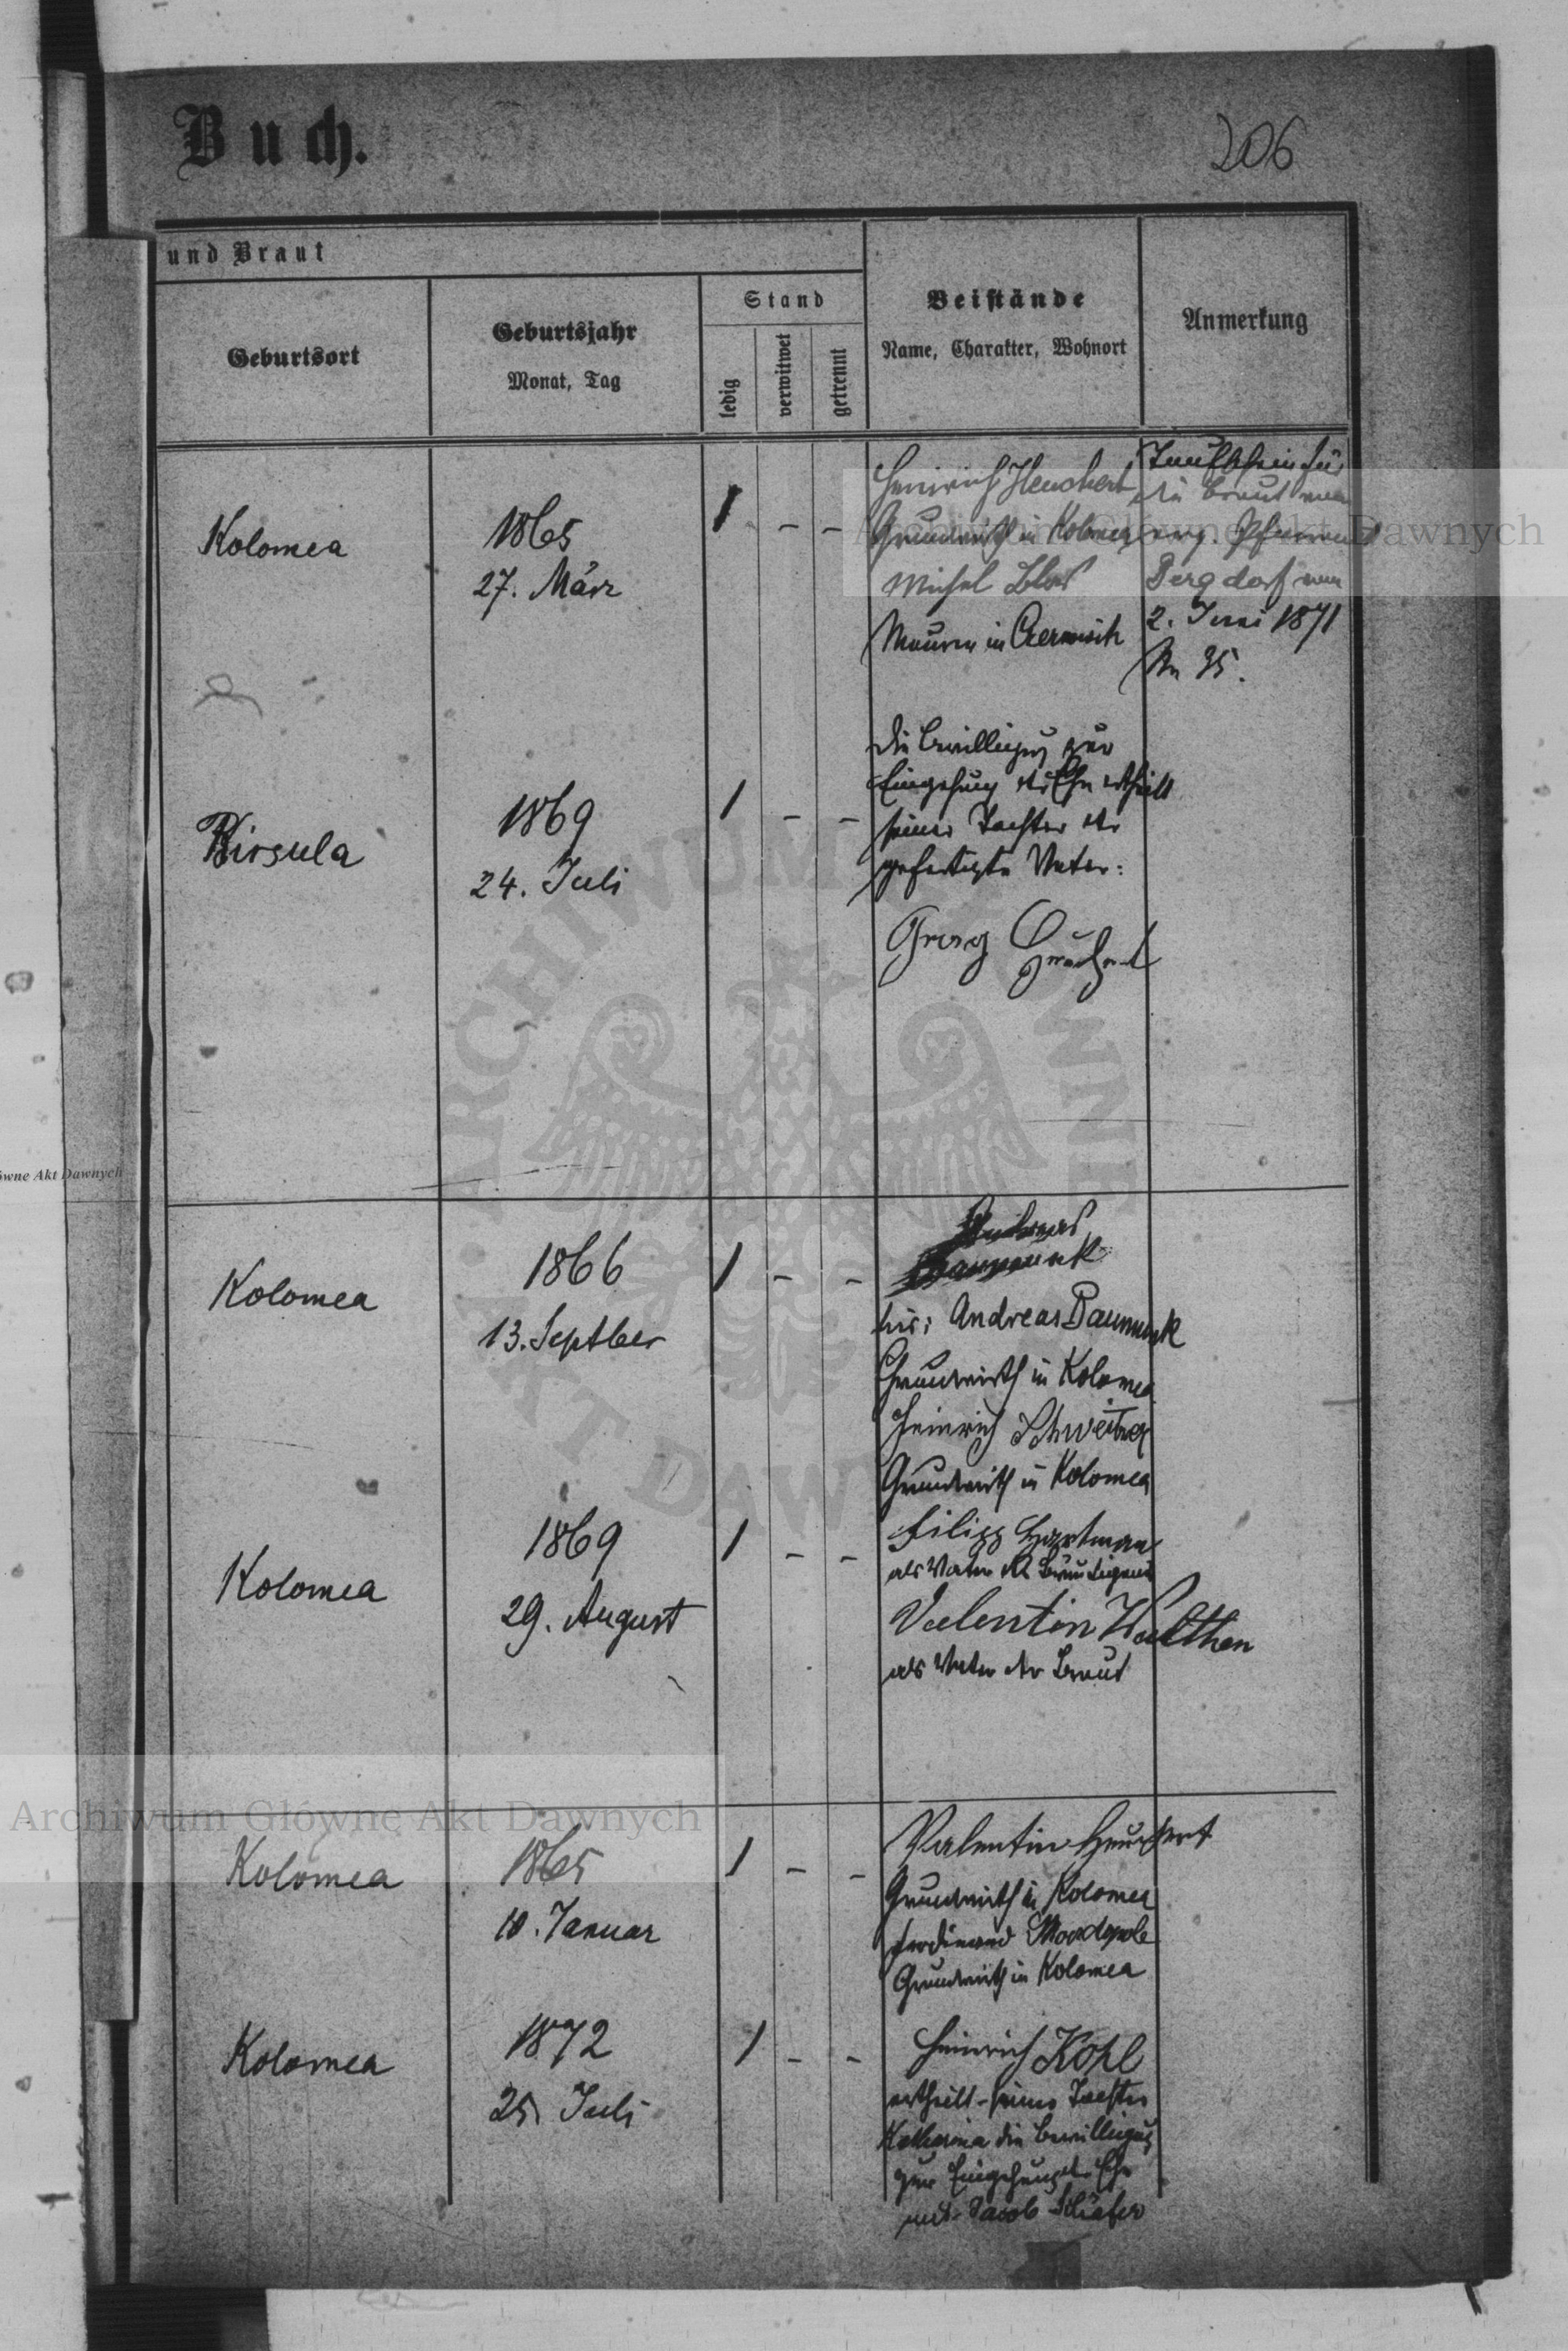 Buch.
206
und Braut
Geburtsort
Geburtsjahr
Monat, Tag
Stand
ledig
verwitwet
getrennt
Beistände
Name, Charakter, Wohnort
Anmerkung
Kolomea
1865
27. März
1 - -
Heinrich Heuchert
Grundwirth in Kolomea
Michel
Maurer in
Taufschein für
die Braut vom
ev. Pfarramt
Bergdorf vom
2. Juni 1871
No 35.
Birsula
1869
24. Juli
1 - -
Die Bewilligung zur
Eingehung der Ehe ertheilt
seiner Tochter der
gefertigte Vater:
Georg Heuchert
Kolomea
1866
13. Septber
1 - -
Andreas
Daumunk
Andreas Daumunk
Grundwirth in Kolomea
Heinrich Schweitzer
Grundwirth in Kolomea
Kolomea
1869
29. August
1 - -
Filipp Hartman
als Vater des Bräutigams
Valentin Walther
als Vater der Braut
Kolomea
1865
10. Januar
1 - -
Valentin Heuchert
Grundwirth in Kolomea
Ferdinand
Grundwirth in Kolomea
Kolomea
1872
25. Juli
1 - -
Heinrich Kohl
ertheilt seiner Tochter
Katharina die Bewilligung
zur Eingehung der Ehe
mit Jacob Schäfer
Archiwum Główne Akt Dawnych
Archiwum Główne Akt Dawnych
ówne Akt Dawnych